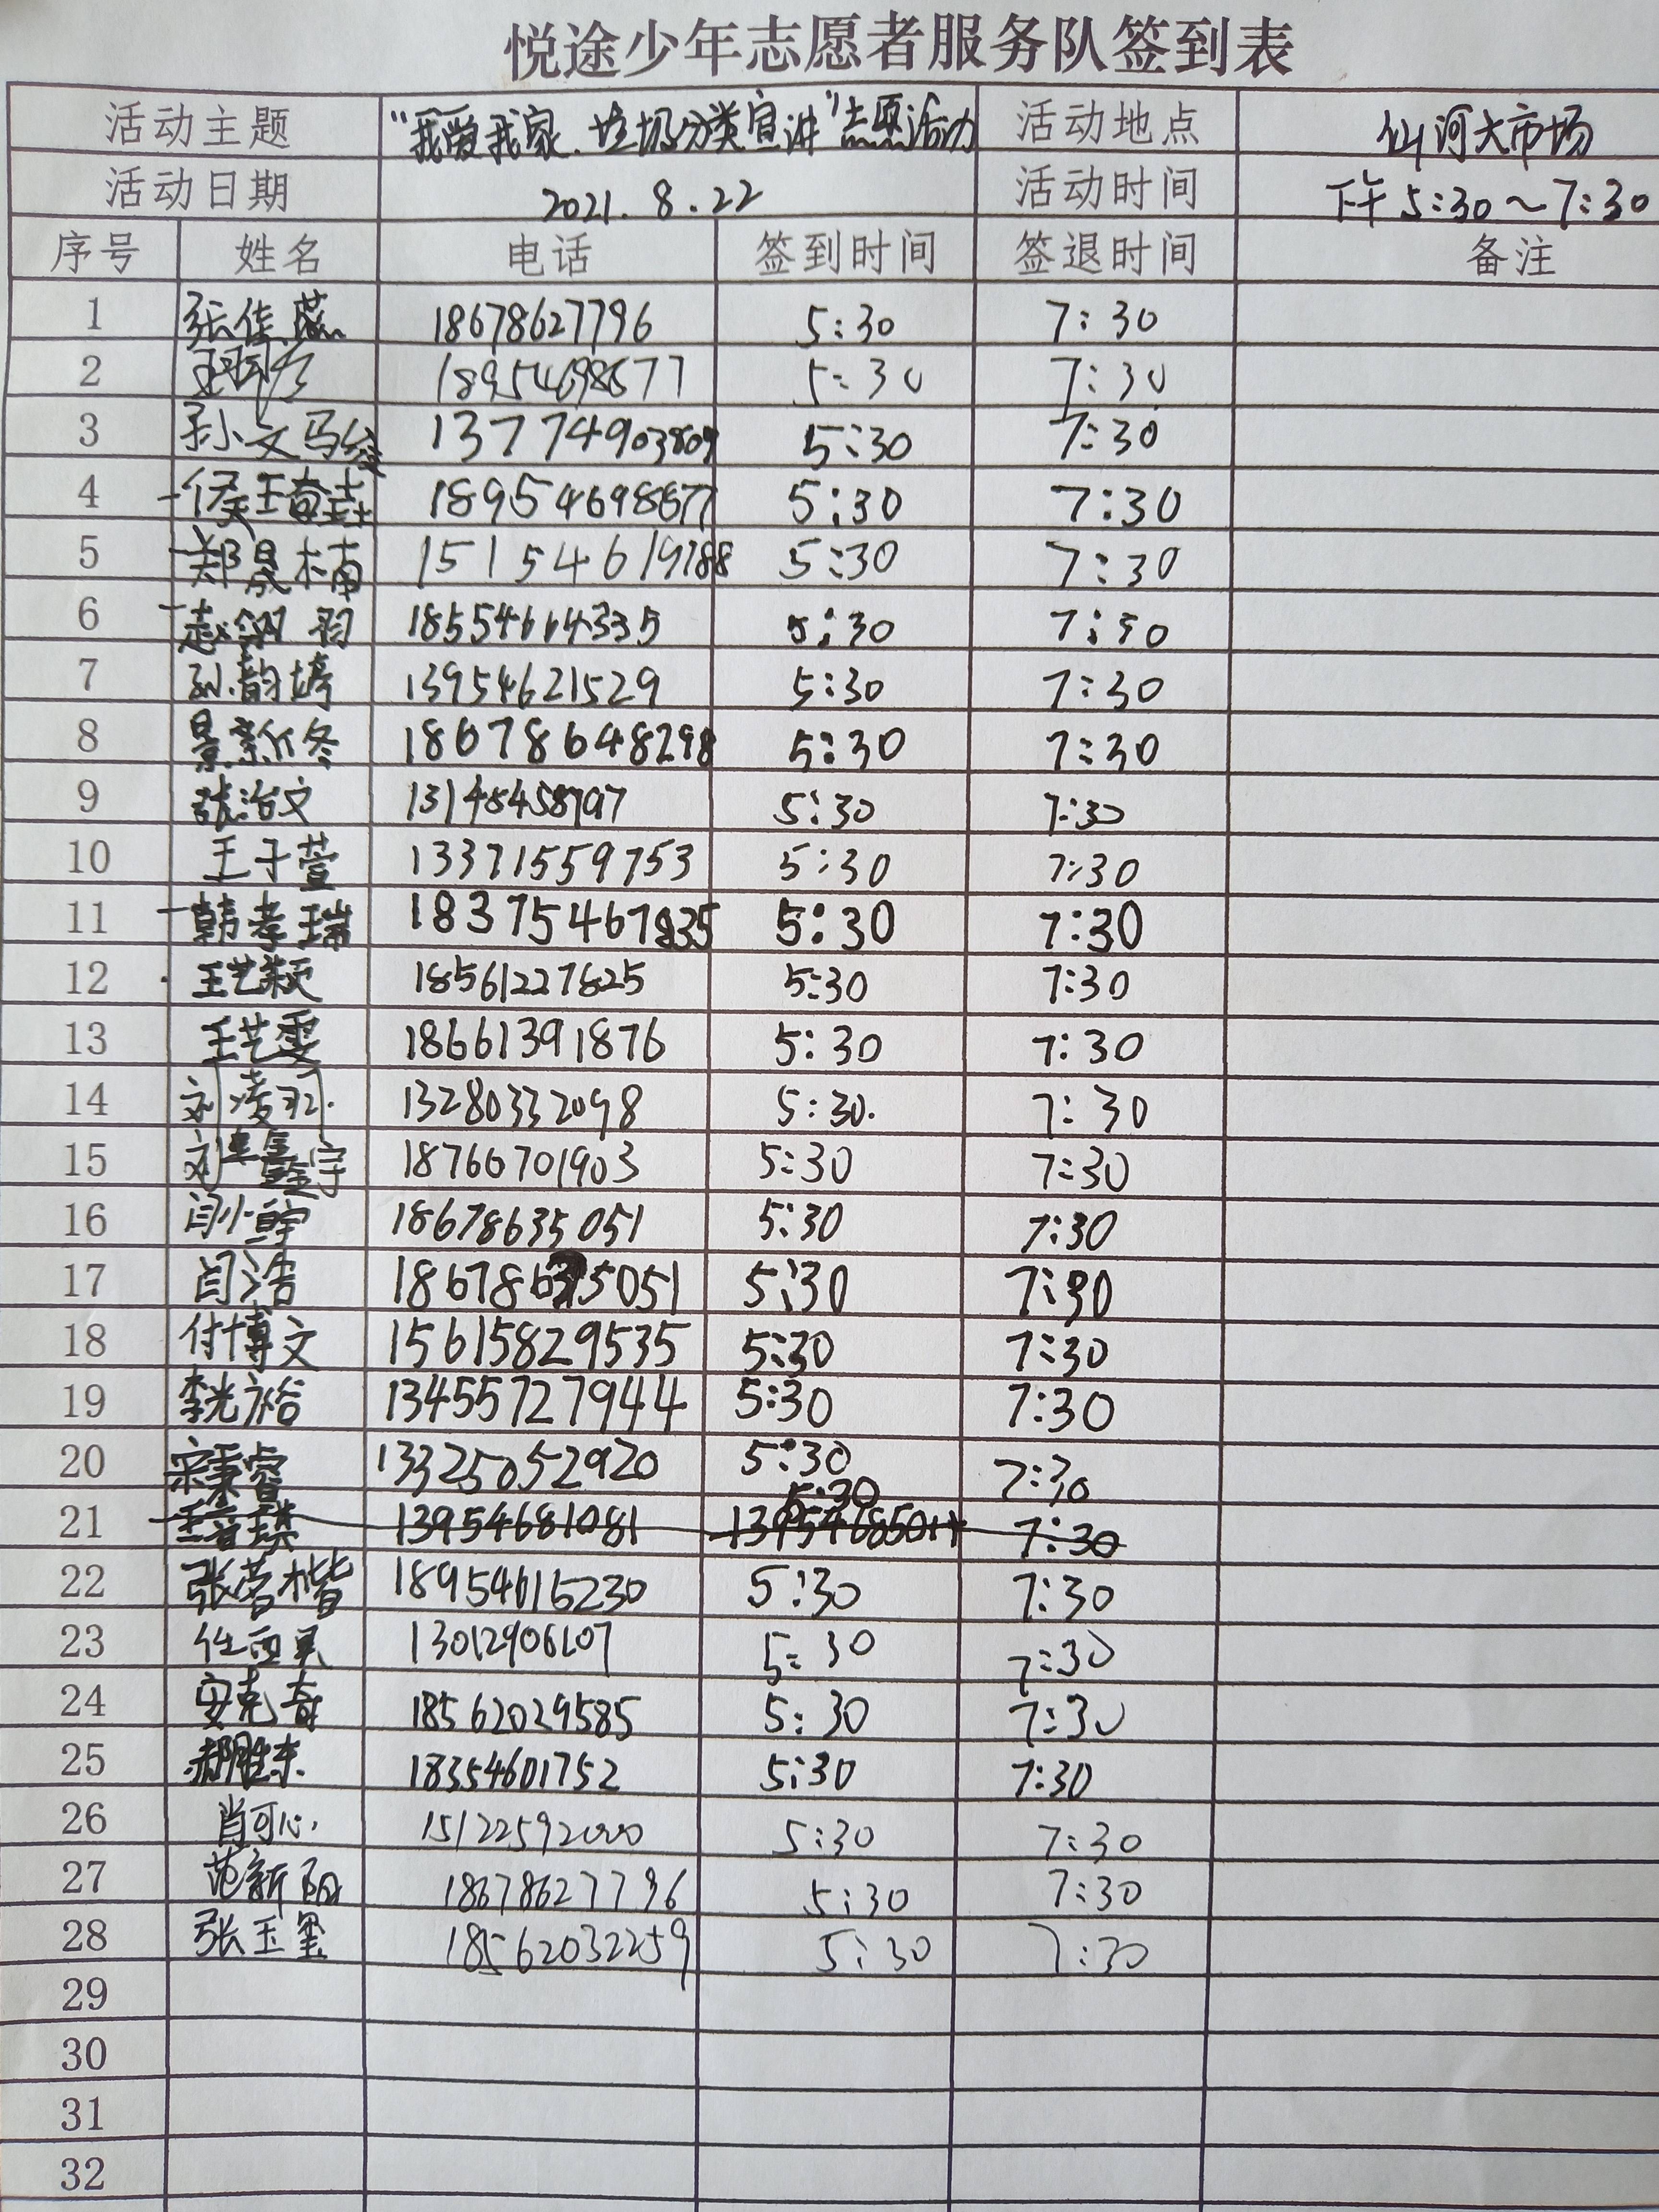 悦途少年志愿者服务队签到表
活动主题 "我爱我家.垃圾分类宣讲"志愿活动 活动地点 仙河大市场
活动日期 2021.8.22 活动时间 下午5:30~7:30
序号 姓名 电话 签到时间 签退时间 备注
1 张佳 18678627796 5:30 7:30
2 18954698677 5:30 7:30
3 孙文 5:30 7:30
4 侯 18954698677 5:30 7:30
5 郑晟楠 5:30 7:30
6 18554614335 5:30 7:30
7 孙韵婷 13954621529 5:30 7:30
8 景 5:30 7:30
9 张治文 5:30 7:30
10 王子萱 133715559753 5:30 7:30
11 韩孝瑞 5:30 7:30
12 王艺颖 18561227825 5:30 7:30
13 王艺雯 18661391876 5:30 7:30
14 刘凌羽 13280332098 5:30. 7:30
15 刘 18766701903 5:30 7:30
16 闫小 18678635051 5:30 7:30
17 闫浩 5:30 7:30
18 付博文 15615829535 5:30 7:30
19 李光裕 13455727944 5:30 7:30
20 宋秉睿 13325052920 5:30 7:30
21 13954681081 5:30 7:30
22 张茗楷 18954615230 5:30 7:30
23 任 13012906107 5:30 7:30
24 安克奇 18562029585 5:30 7:30
25 郝胜东 18354601752 5:30 7:30
26 肖可心 15122592000 5:30 7:30
27 范新丽 18678627796 5:30 7:30
28 张玉玺 18562032259 5:30 7:30
29
30
31
32